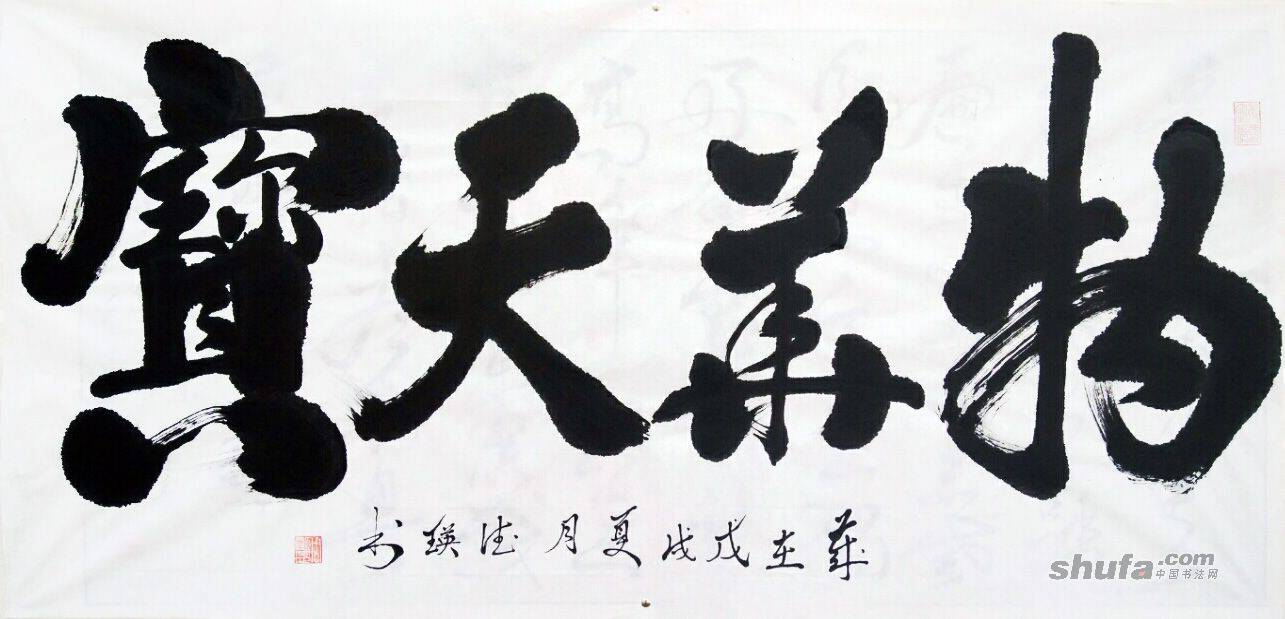 物華天寶
歲在戊戌夏月德瑛书
shufa.com
中国书法网